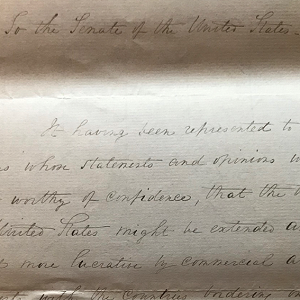 To the Senate of the United States.
It having been represented to
whose statements and opinions w
worthy of confidence, that the
United States might be extended a
more lucrative by commercial a
with the countries bordering o